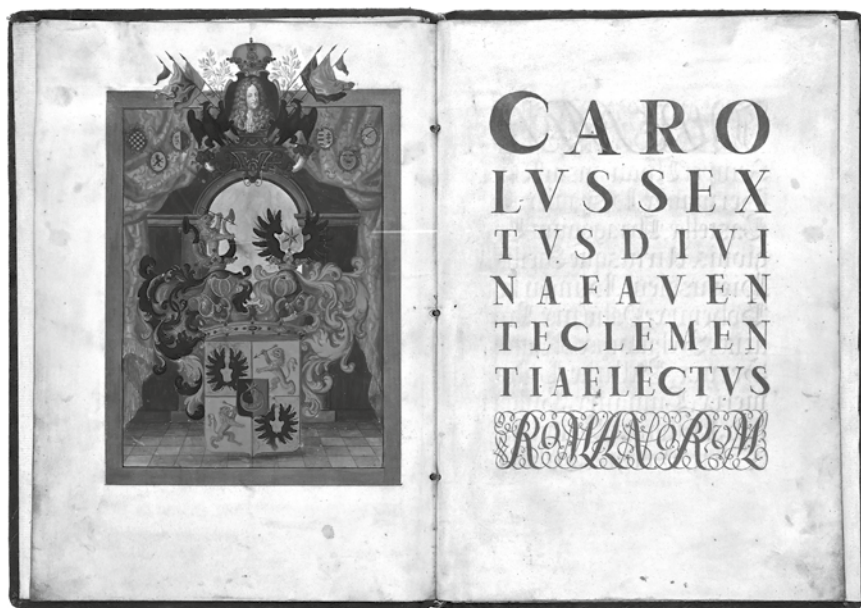 CARO
LVSSEX
TVSDIVI
NAFAVEN
TECLEMEN
TIAELECTVS
ROMANORUM